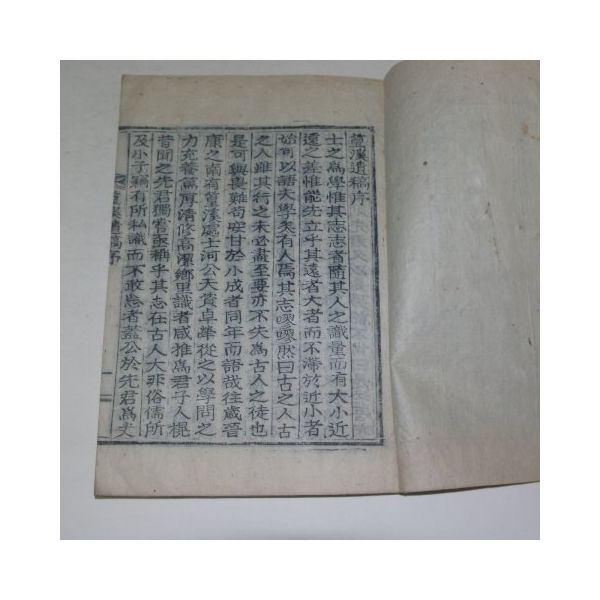 篔溪遺稿序
士之爲學惟其志志者隨其人之識量而有大小近
遠之差惟能先立乎其遠者大者而不滯於近小者
始可以語夫學矣有人焉其志嘐嘐然曰古之人古
之人雖其行之未必盡至要亦不失爲古人之徒也
是可與晨雞苟空甘於小成者同年而語哉往歲晉
康之南有篔溪處士河公天資卓犖從之以學問之
力充養篤厚清修高潔鄉里識者咸推爲君子人棍
昔聞之先君獨嘗亟稱乎其志在古人大非俗儒所
及小子竊有所私識而不敢忘者蓋公於先君爲犬
篔溪遺稿序